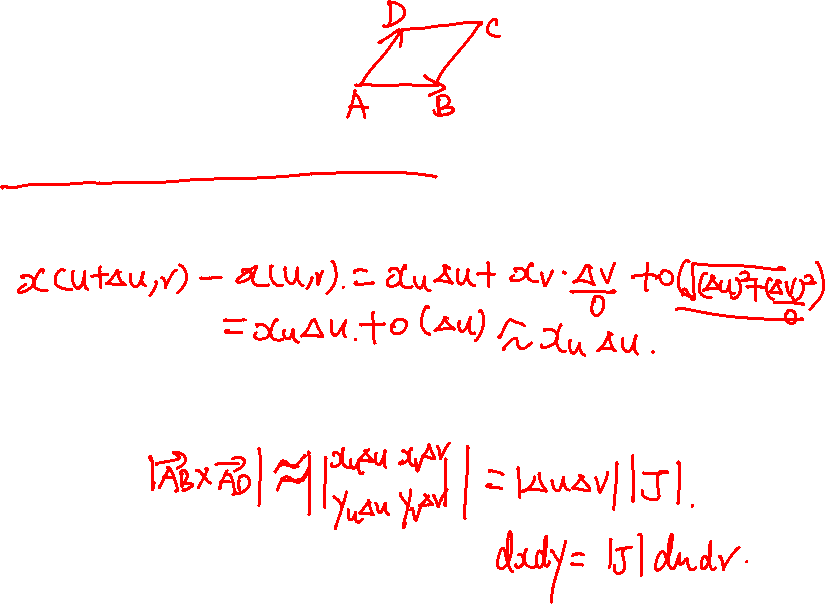 D C
A B
x(u+Δu,v) − x(u,v). = x_u Δu + x_v · Δv + o(√((Δu)²+(Δv)²))
0 0
= x_u Δu. + o(Δu) ≈ x_u Δu.
|AB⃗ × AD⃗| ≈ | |x_uΔu x_vΔv
y_uΔu y_vΔv| | = |ΔuΔv| |J|.
dxdy = |J| dudv.